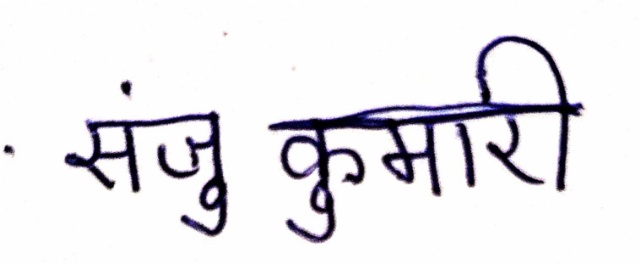 संजु कुमारी